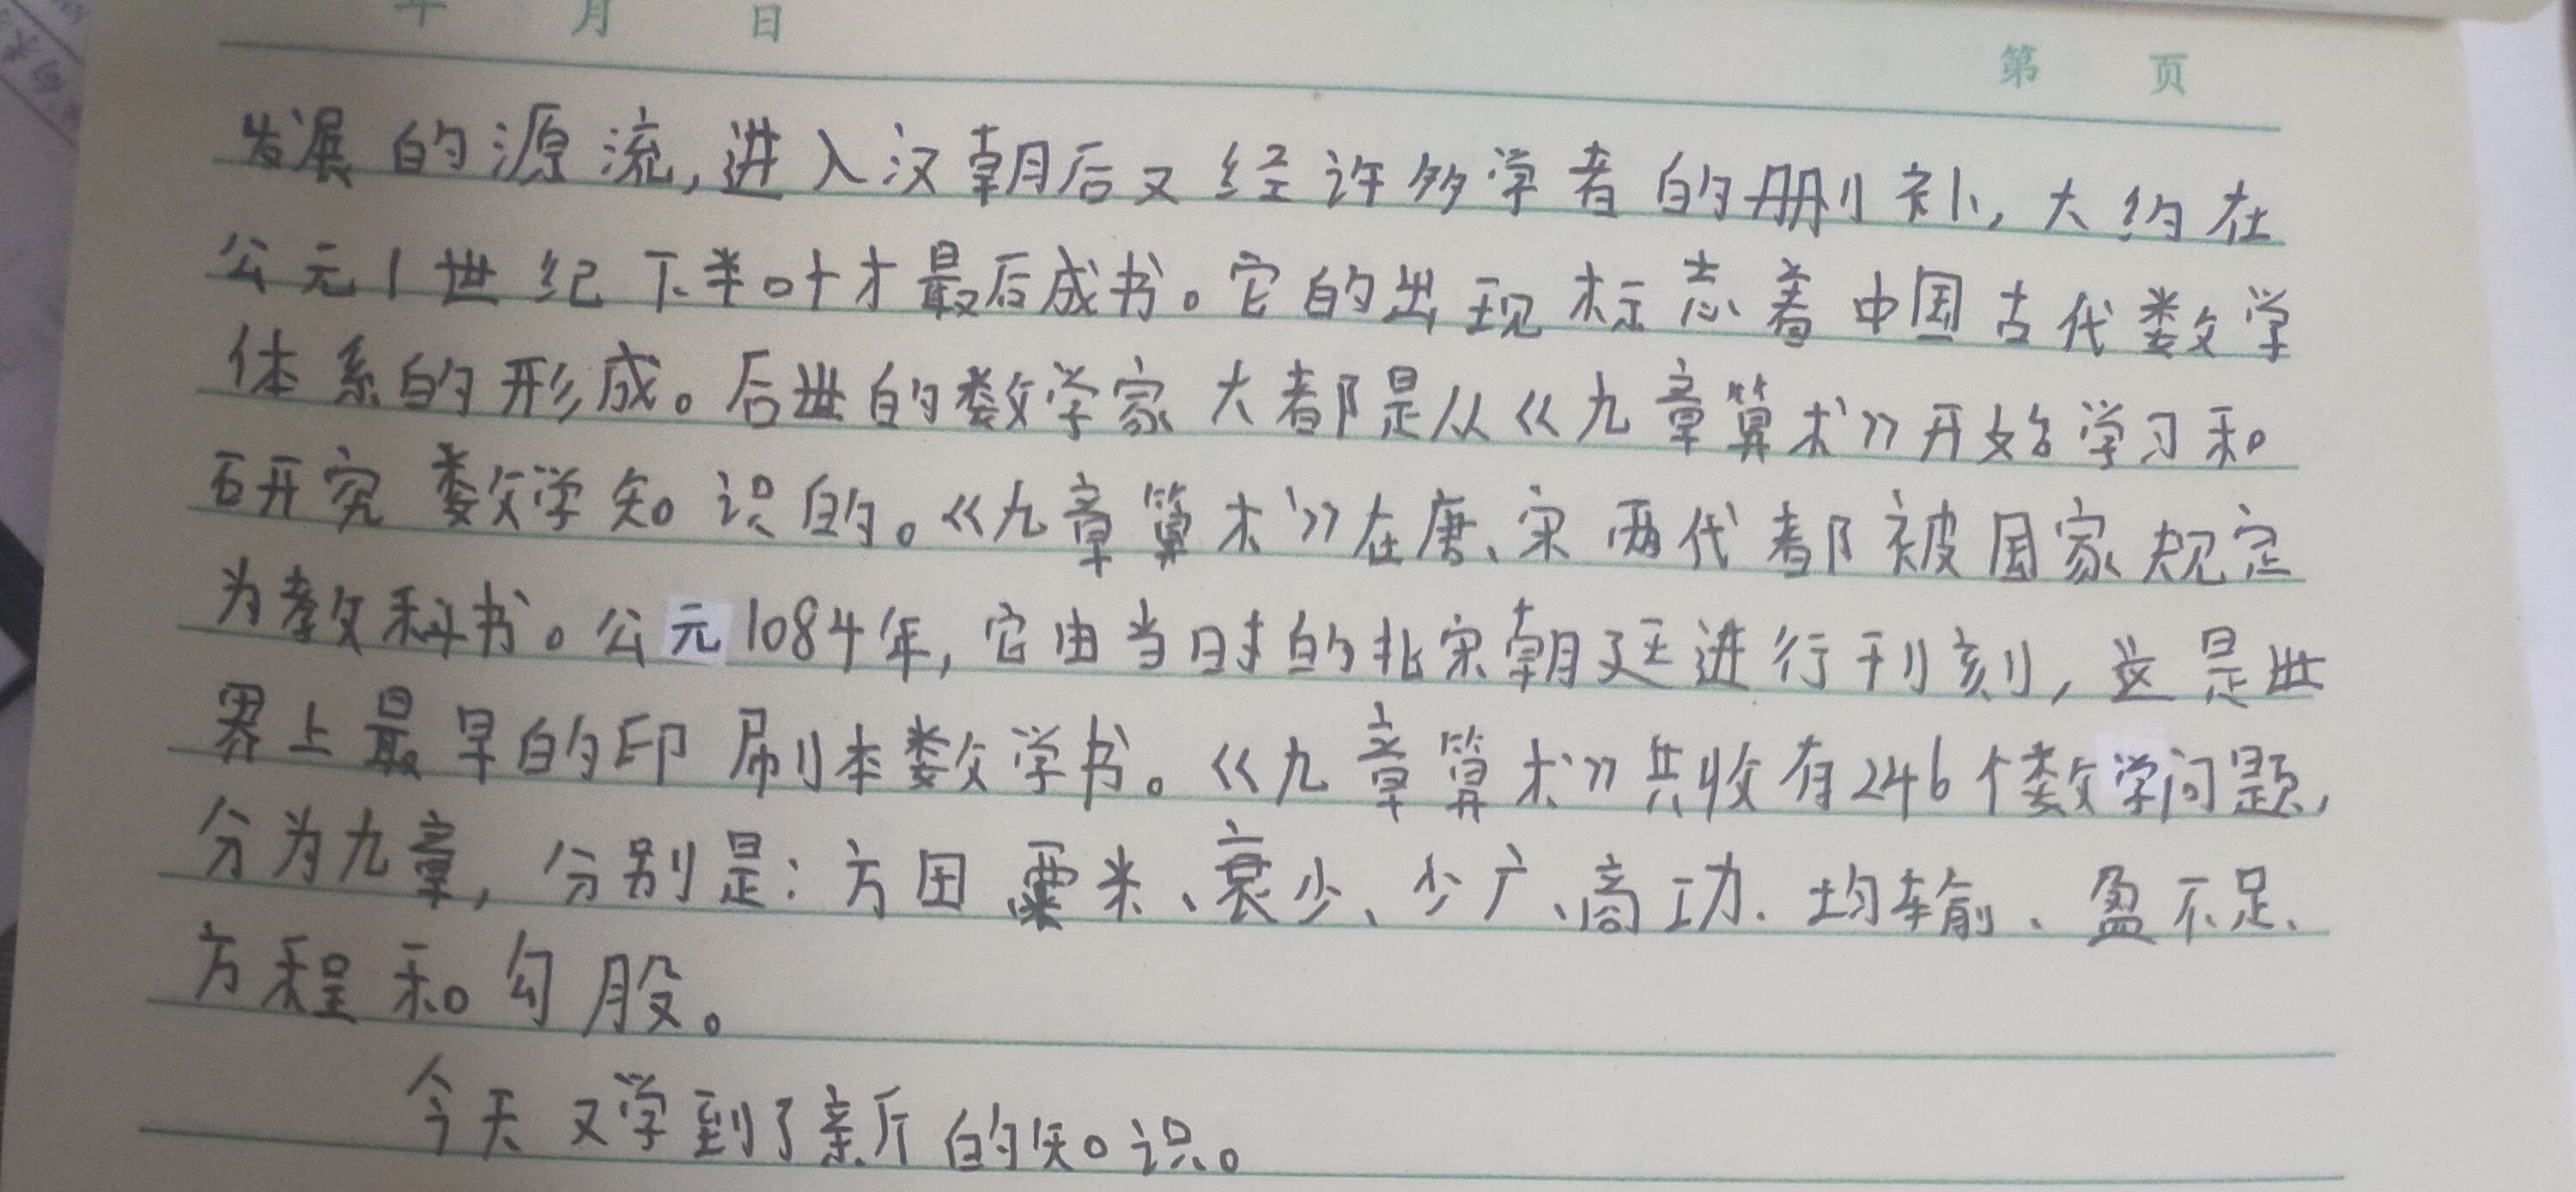 年 月 日
第 页
发展的源流,进入汉朝后又经许多学者的删补,大约在
公元1世纪下半叶才最后成书。它的出现标志着中国古代数学
体系的形成。后世的数学家大都是从《九章算术》开始学习和
研究数学知识的。《九章算术》在唐、宋两代都被国家规定
为教科书。公元1084年,它由当时的北宋朝廷进行刊刻,这是世
界上最早的印刷本数学书。《九章算术》共收有246个数学问题,
分为九章,分别是:方田 粟米、衰少、少广、商功、均输、盈不足、
方程和勾股。
今天又学到了新的知识。